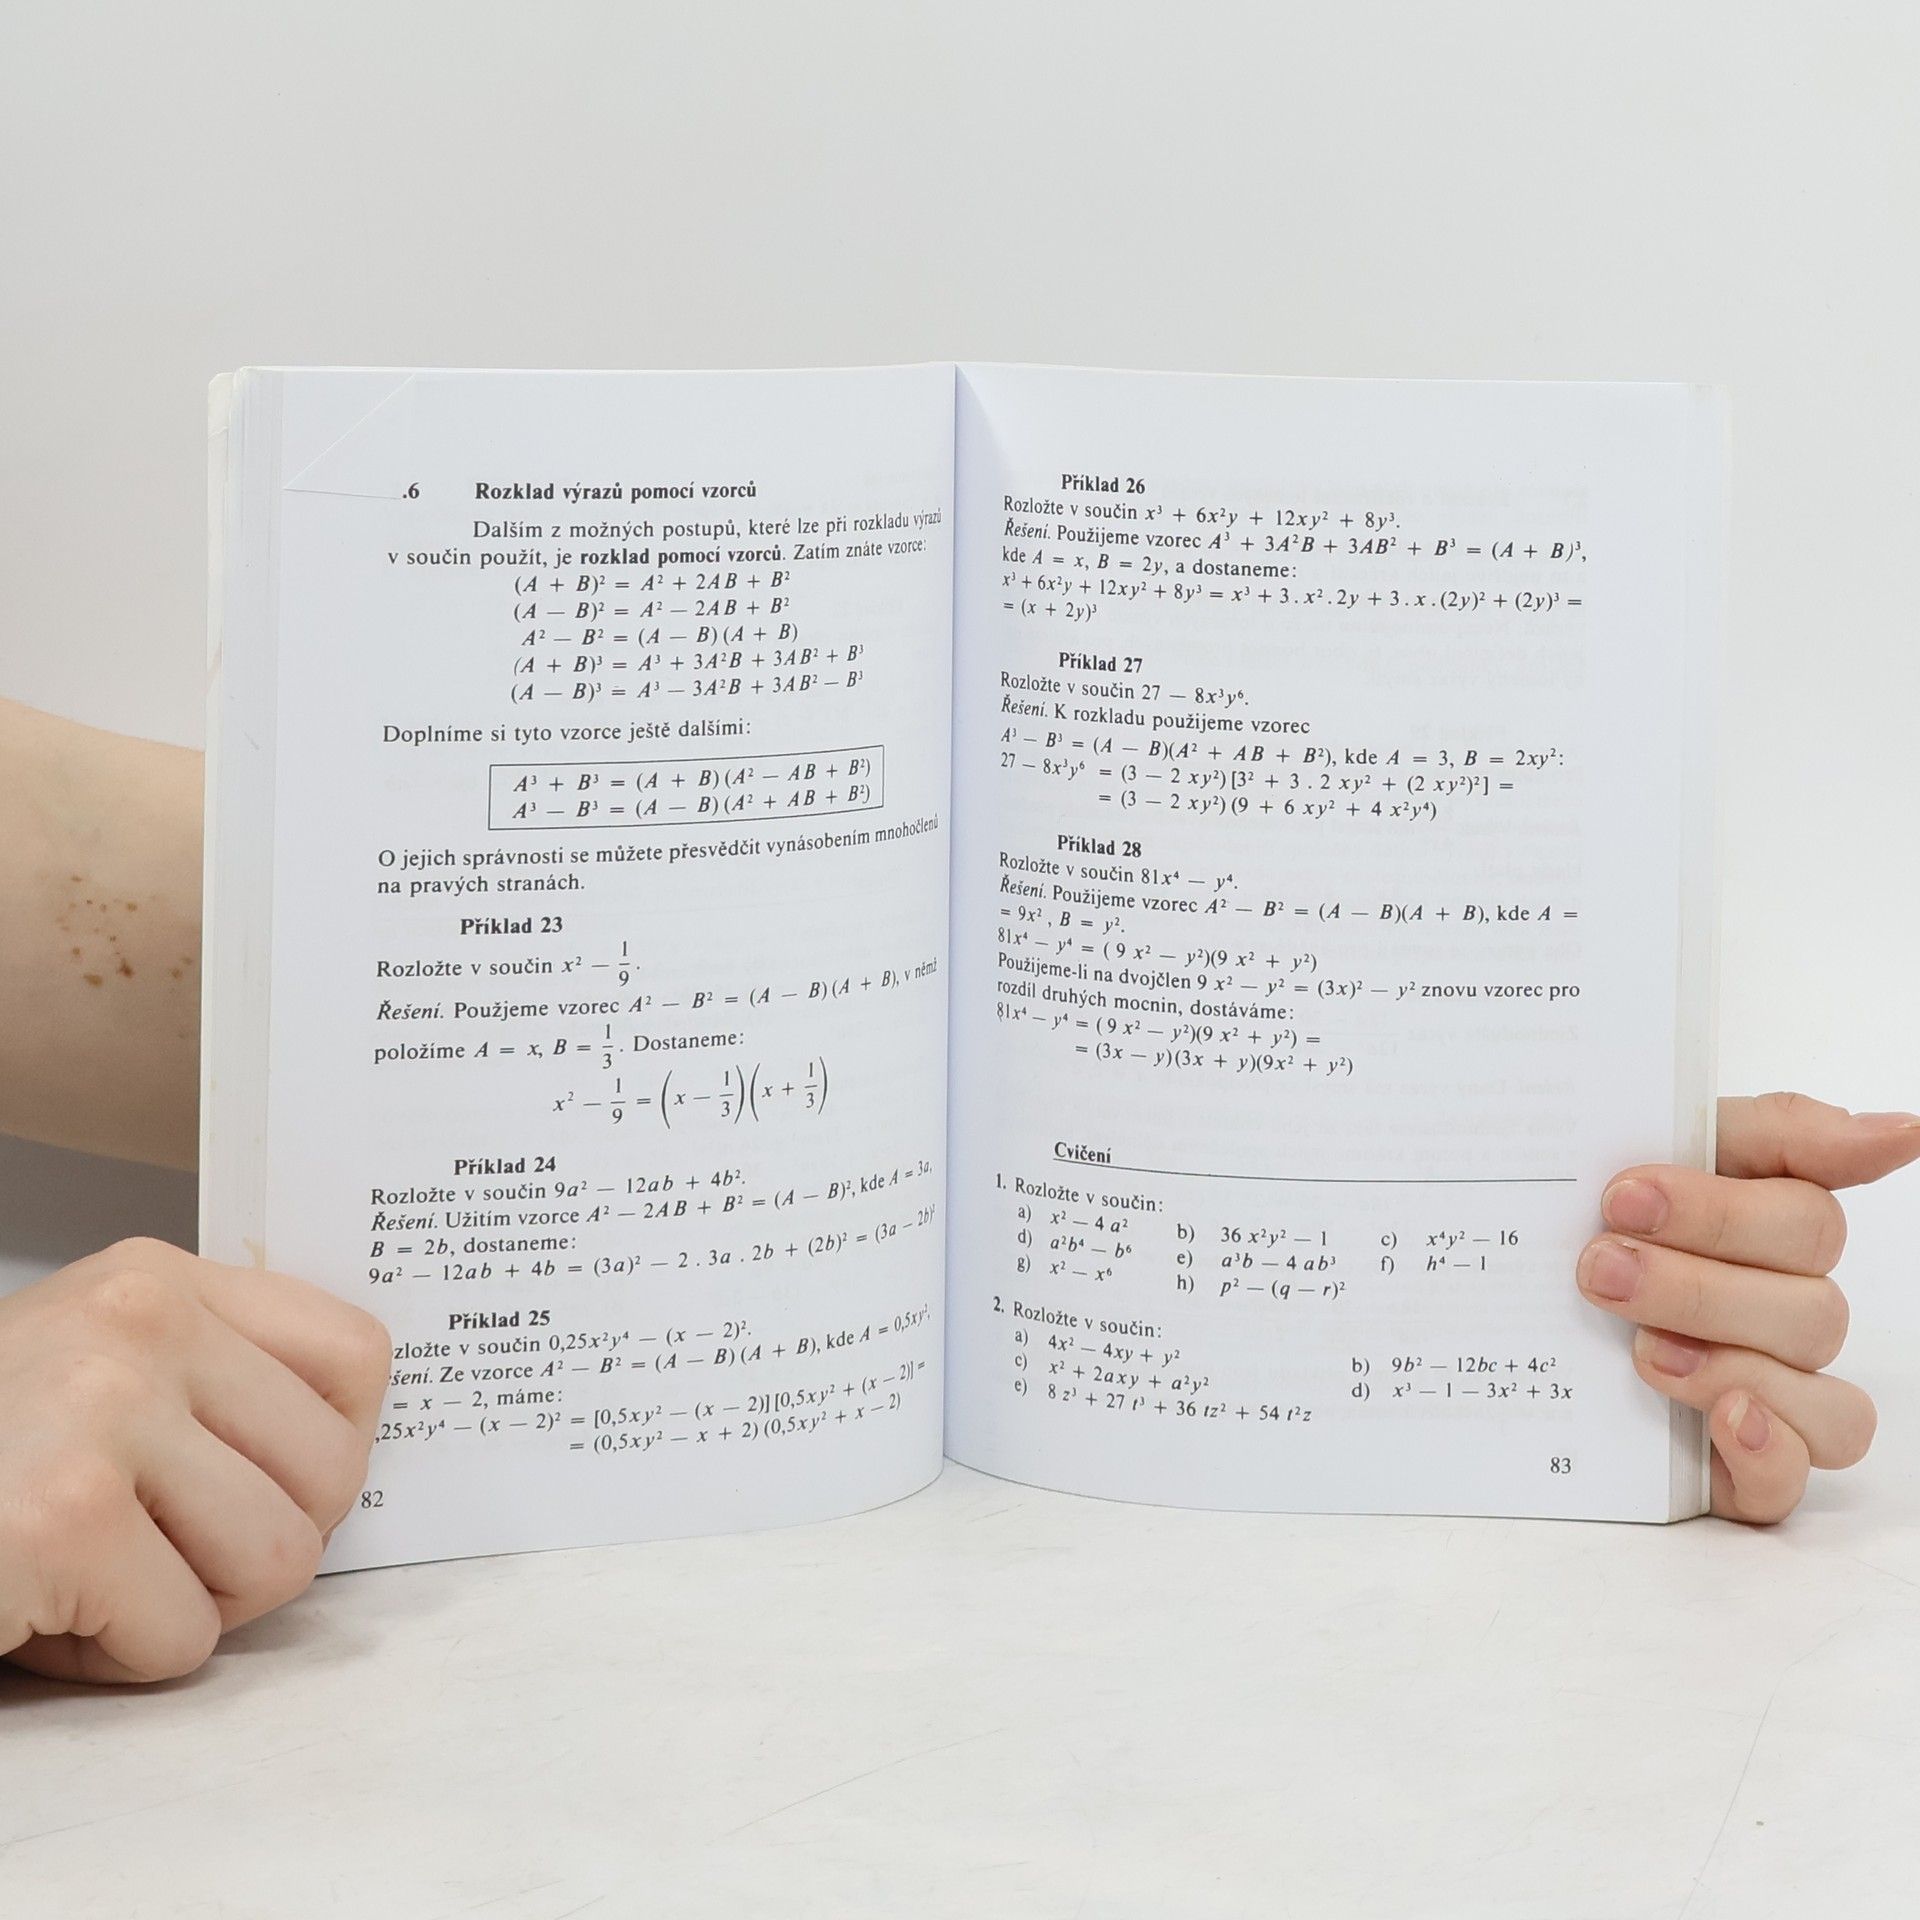 .6 Rozklad výrazů pomocí vzorců
Dalším z možných postupů, které lze při rozkladu výrazů
v součin použít, je rozklad pomocí vzorců. Zatím znáte vzorce:
(A + B)² = A² + 2AB + B²
(A — B)² = A² — 2AB + B²
A² — B² = (A — B)(A + B)
(A + B)³ = A³ + 3A²B + 3AB² + B³
(A — B)³ = A³ — 3A²B + 3AB² — B³
Doplníme si tyto vzorce ještě dalšími:
A³ + B³ = (A + B)(A² — AB + B²)
A³ — B³ = (A — B)(A² + AB + B²)
O jejich správnosti se můžete přesvědčit vynásobením mnohočlenů
na pravých stranách.
Příklad 23
Rozložte v součin x² — 1/9.
Řešení. Použjeme vzorec A² — B² = (A — B)(A + B), v němž
položíme A = x, B = 1/3. Dostaneme:
x² — 1/9 = (x — 1/3)(x + 1/3)
Příklad 24
Rozložte v součin 9a² — 12ab + 4b².
Řešení. Užitím vzorce A² — 2AB + B² = (A — B)², kde A = 3a,
B = 2b, dostaneme:
9a² — 12ab + 4b = (3a)² — 2 . 3a . 2b + (2b)² = (3a — 2b)²
Příklad 25
zložte v součin 0,25x²y⁴ — (x — 2)².
šení. Ze vzorce A² — B² = (A — B)(A + B), kde A = 0,5xy²,
= x — 2, máme:
,25x²y⁴ — (x — 2)² = [0,5xy² — (x — 2)][0,5xy² + (x — 2)] =
= (0,5xy² — x + 2)(0,5xy² + x — 2)
82
Příklad 26
Rozložte v součin x³ + 6x²y + 12xy² + 8y³.
Řešení. Použijeme vzorec A³ + 3A²B + 3AB² + B³ = (A + B)³,
kde A = x, B = 2y, a dostaneme:
x³ + 6x²y + 12xy² + 8y³ = x³ + 3 . x² . 2y + 3 . x . (2y)² + (2y)³ =
= (x + 2y)³
Příklad 27
Rozložte v součin 27 — 8x³y⁶.
Řešení. K rozkladu použijeme vzorec
A³ — B³ = (A — B)(A² + AB + B²), kde A = 3, B = 2xy²:
27 — 8x³y⁶ = (3 — 2 xy²)[3² + 3 . 2 xy² + (2 xy²)²] =
= (3 — 2 xy²)(9 + 6 xy² + 4 x²y⁴)
Příklad 28
Rozložte v součin 81x⁴ — y⁴.
Řešení. Použijeme vzorec A² — B² = (A — B)(A + B), kde A =
= 9x², B = y².
81x⁴ — y⁴ = ( 9 x² — y²)(9 x² + y²)
Použijeme-li na dvojčlen 9 x² — y² = (3x)² — y² znovu vzorec pro
rozdíl druhých mocnin, dostáváme:
81x⁴ — y⁴ = ( 9 x² — y²)(9 x² + y²) =
= (3x — y)(3x + y)(9x² + y²)
Cvičení
1. Rozložte v součin:
a) x² — 4 a² b) 36 x²y² — 1 c) x⁴y² — 16
d) a²b⁴ — b⁶ e) a³b — 4 ab³ f) h⁴ — 1
g) x² — x⁶ h) p² — (q — r)²
2. Rozložte v součin:
a) 4x² — 4xy + y² b) 9b² — 12bc + 4c²
c) x² + 2axy + a²y² d) x³ — 1 — 3x² + 3x
e) 8 z³ + 27 t³ + 36 tz² + 54 t²z
83